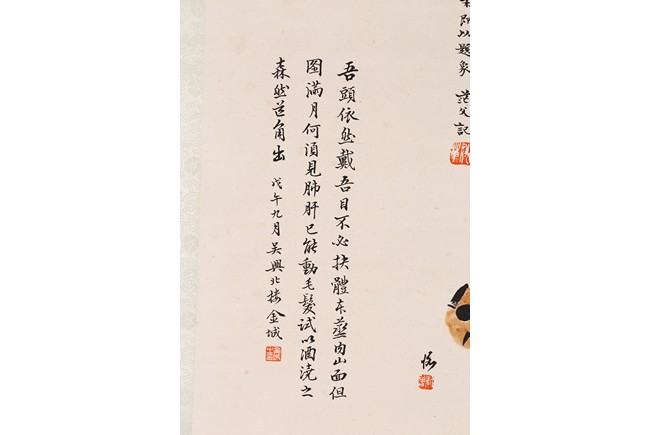 所以題象 茫父記
吾頭依然戴吾目不必抉體本蒸肉山面但
圓滿月何須見肺肝已能動毛髮試以酒澆之
森然芒角出 戊午九月吳興北樓金城
恪